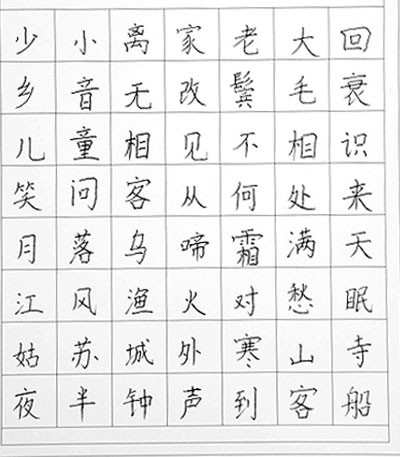 少小离家老大回
乡音无改鬓毛衰
儿童相见不相识
笑问客从何处来
月落乌啼霜满天
江风渔火对愁眠
姑苏城外寒山寺
夜半钟声到客船